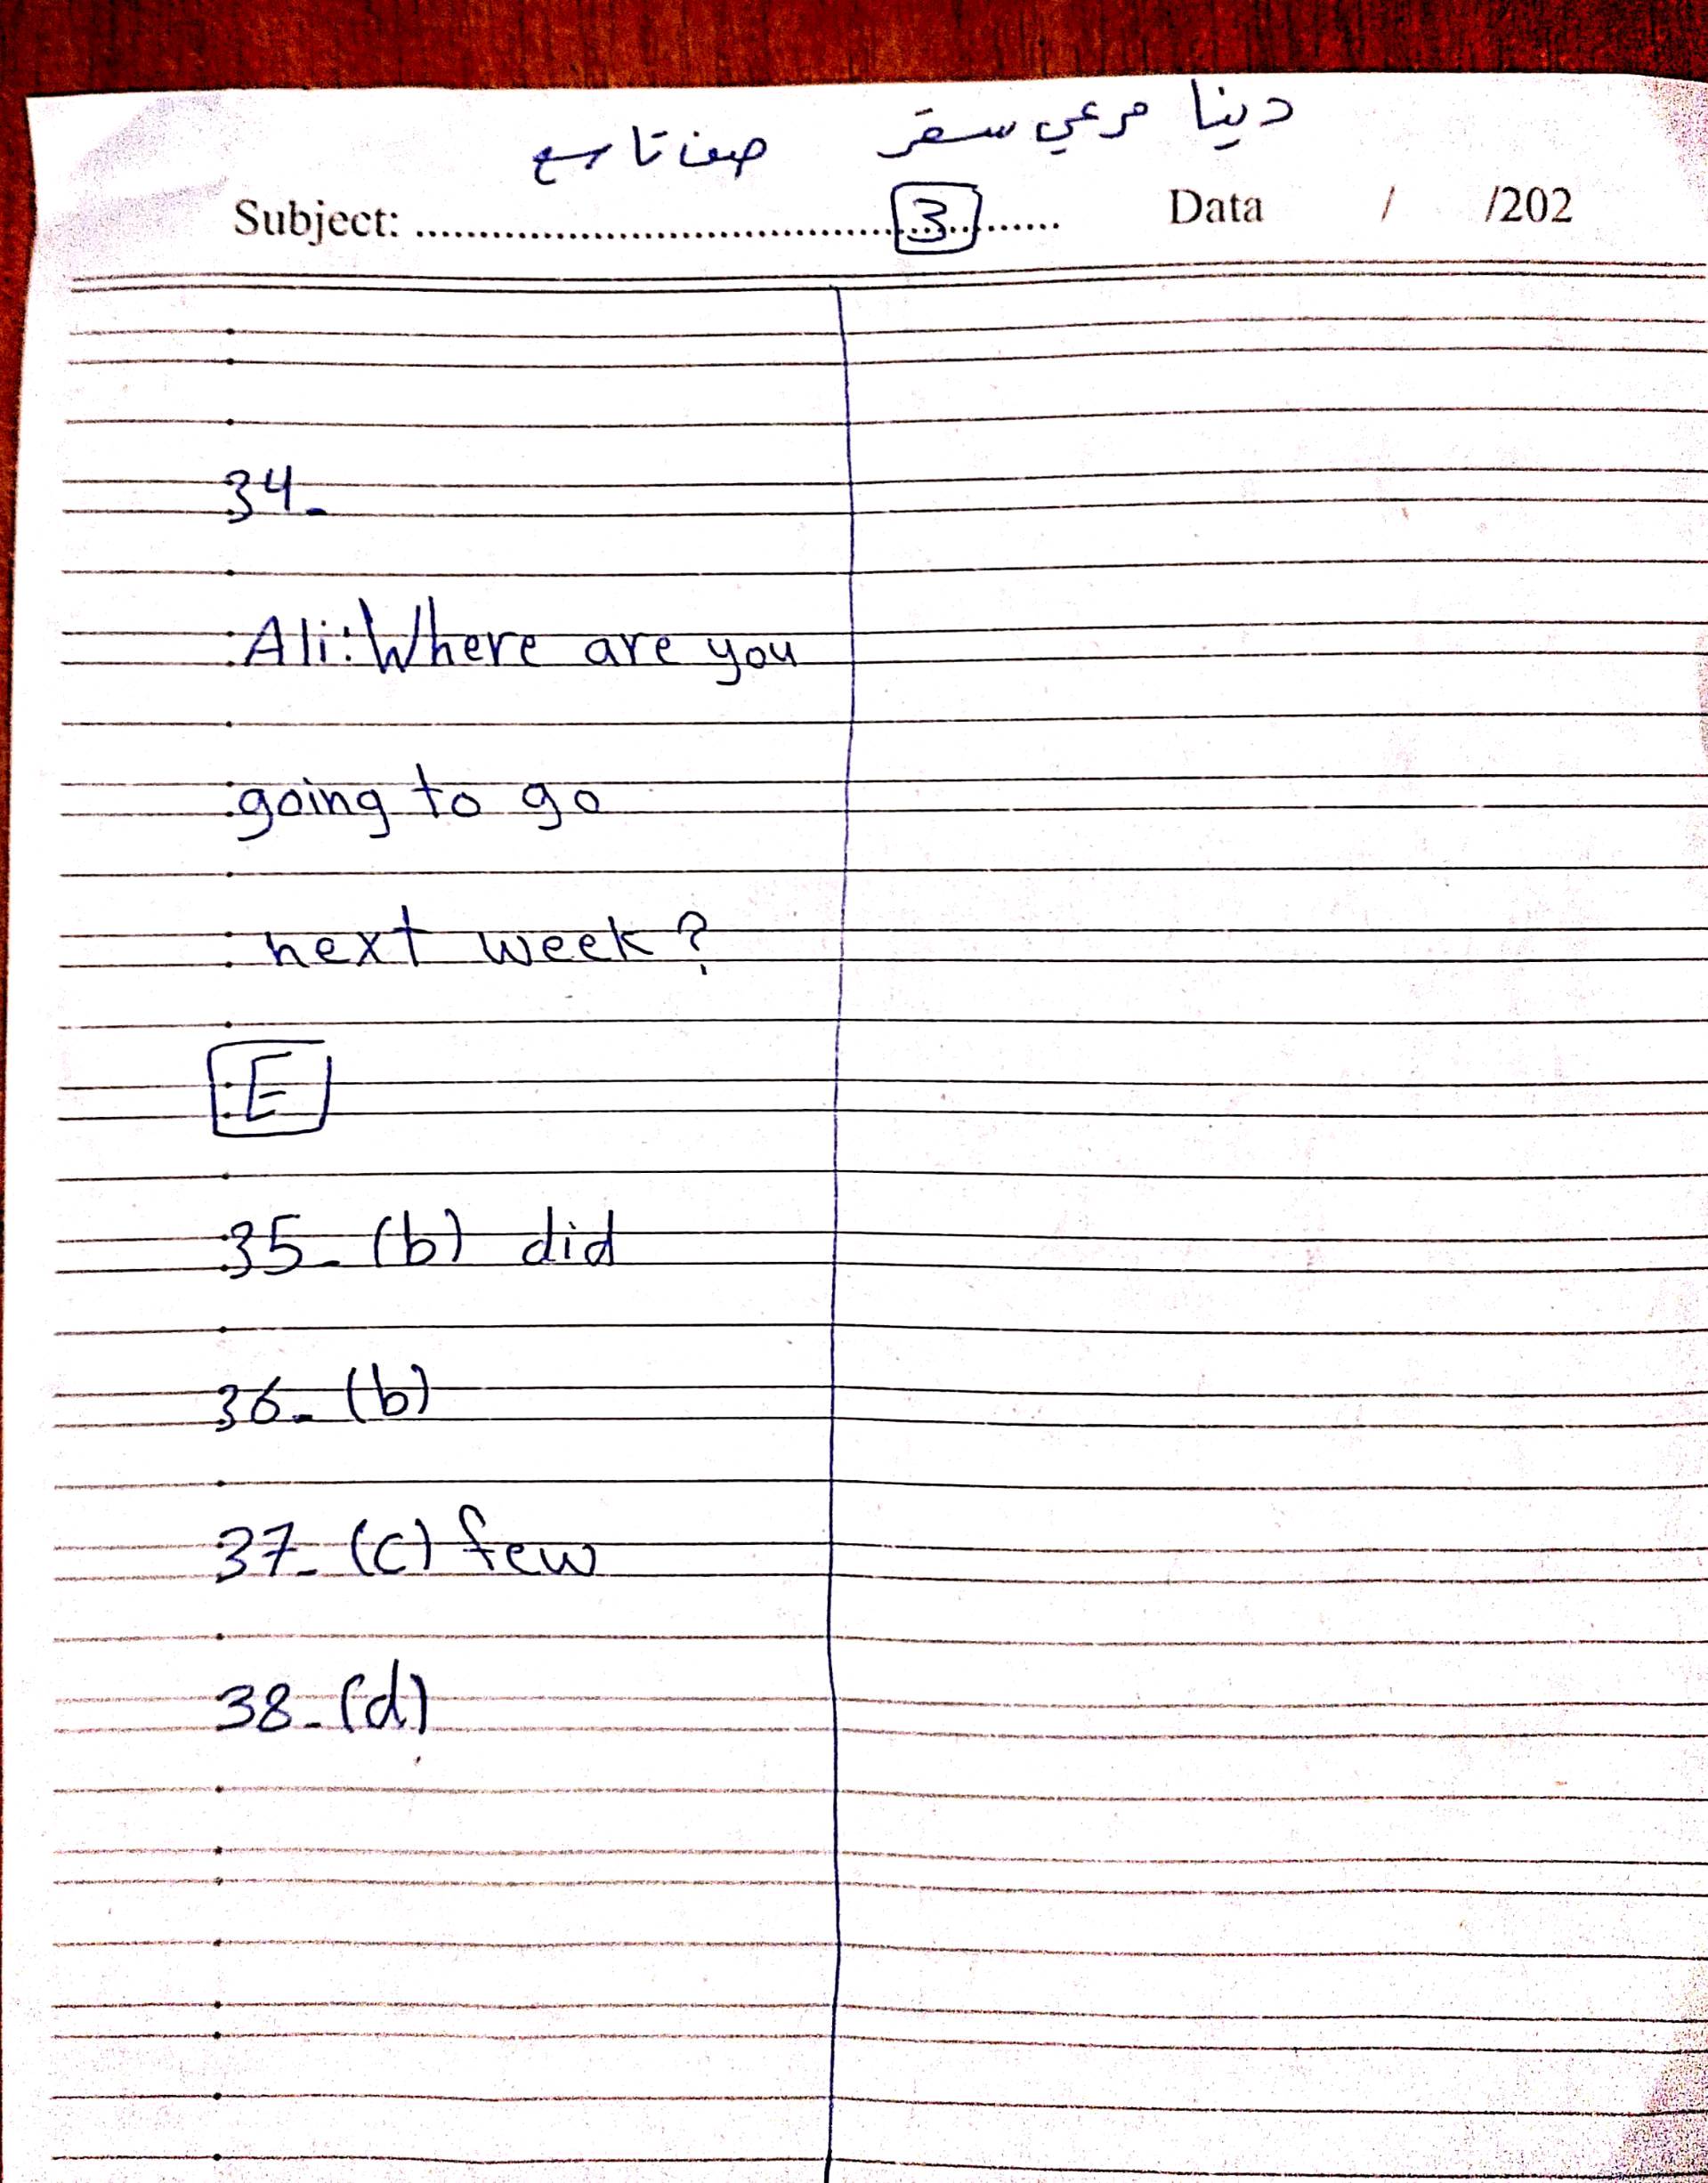 دينا مرعي سقر صف تاسع
Subject: ............................................. 3 ....... Data / /202
34-
Ali: Where are you
going to go
next week?
E
35- (b) did
36- (b)
37- (c) few
38- (d)